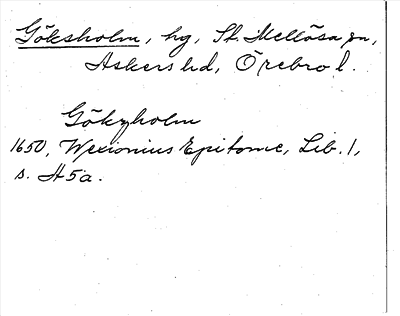 Göksholm, hg, St. Mellösa sn,
Askers hd, Örebro l.
Gökzholm
1650, Wexionius Epitome, Lib. 1,
s. H 5 a.